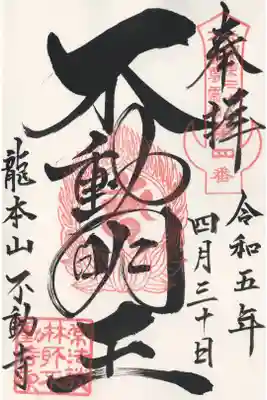 奉拝
令和五年
四月三十日
不動明王
龍本山 不動寺